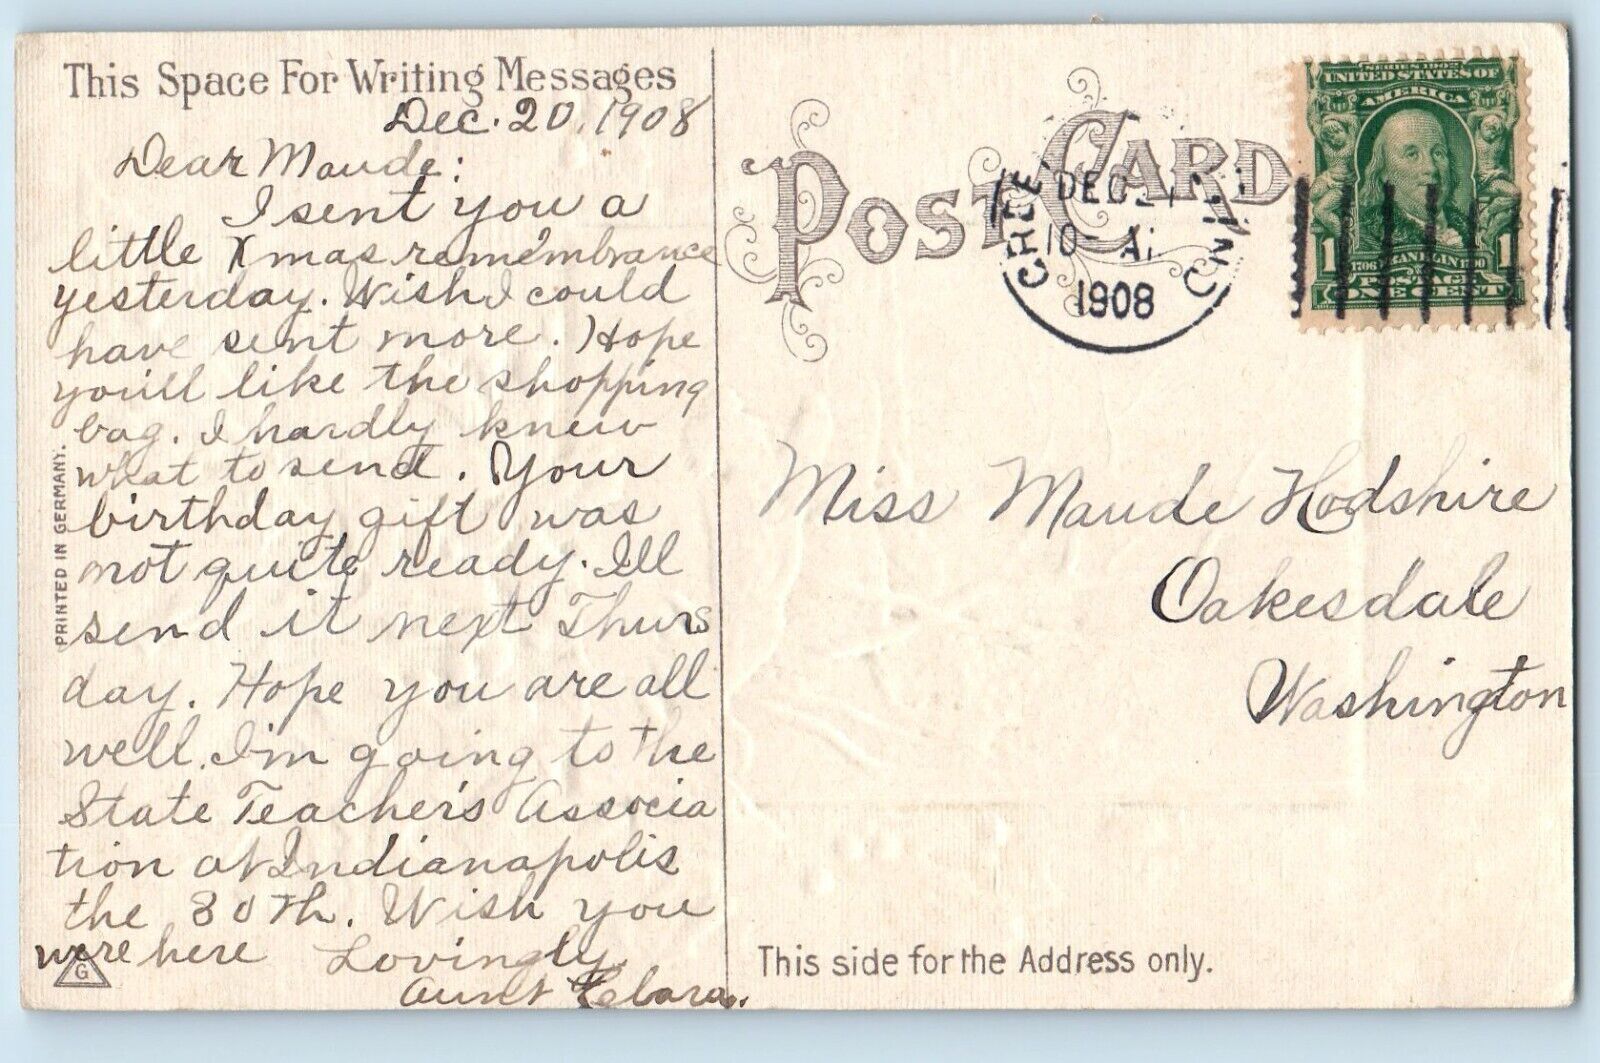 This Space For Writing Messages
Dec. 20, 1908
Dear Maude:
I sent you a
little Xmas remembrance
yesterday. Wish I could
have sent more. Hope
you'll like the shopping
bag. I hardly knew
what to send. Your
birthday gift was
not quite ready. Ill
send it next Thurs
day. Hope you are all
well. I'm going to the
State Teacher's Associa
tion at Indianapolis
the 30th. Wish you
were here Lovingly,
Aunt Clara.
PRINTED IN GERMANY.
G
POST CARD
DEC
10- A
1908
SERIES 1902
UNITED STATES OF
AMERICA
1 1706 FRANKLIN 1790 1
POSTAGE
ONE CENT
Miss Maude Hodshire
Oakesdale
Washington
This side for the Address only.